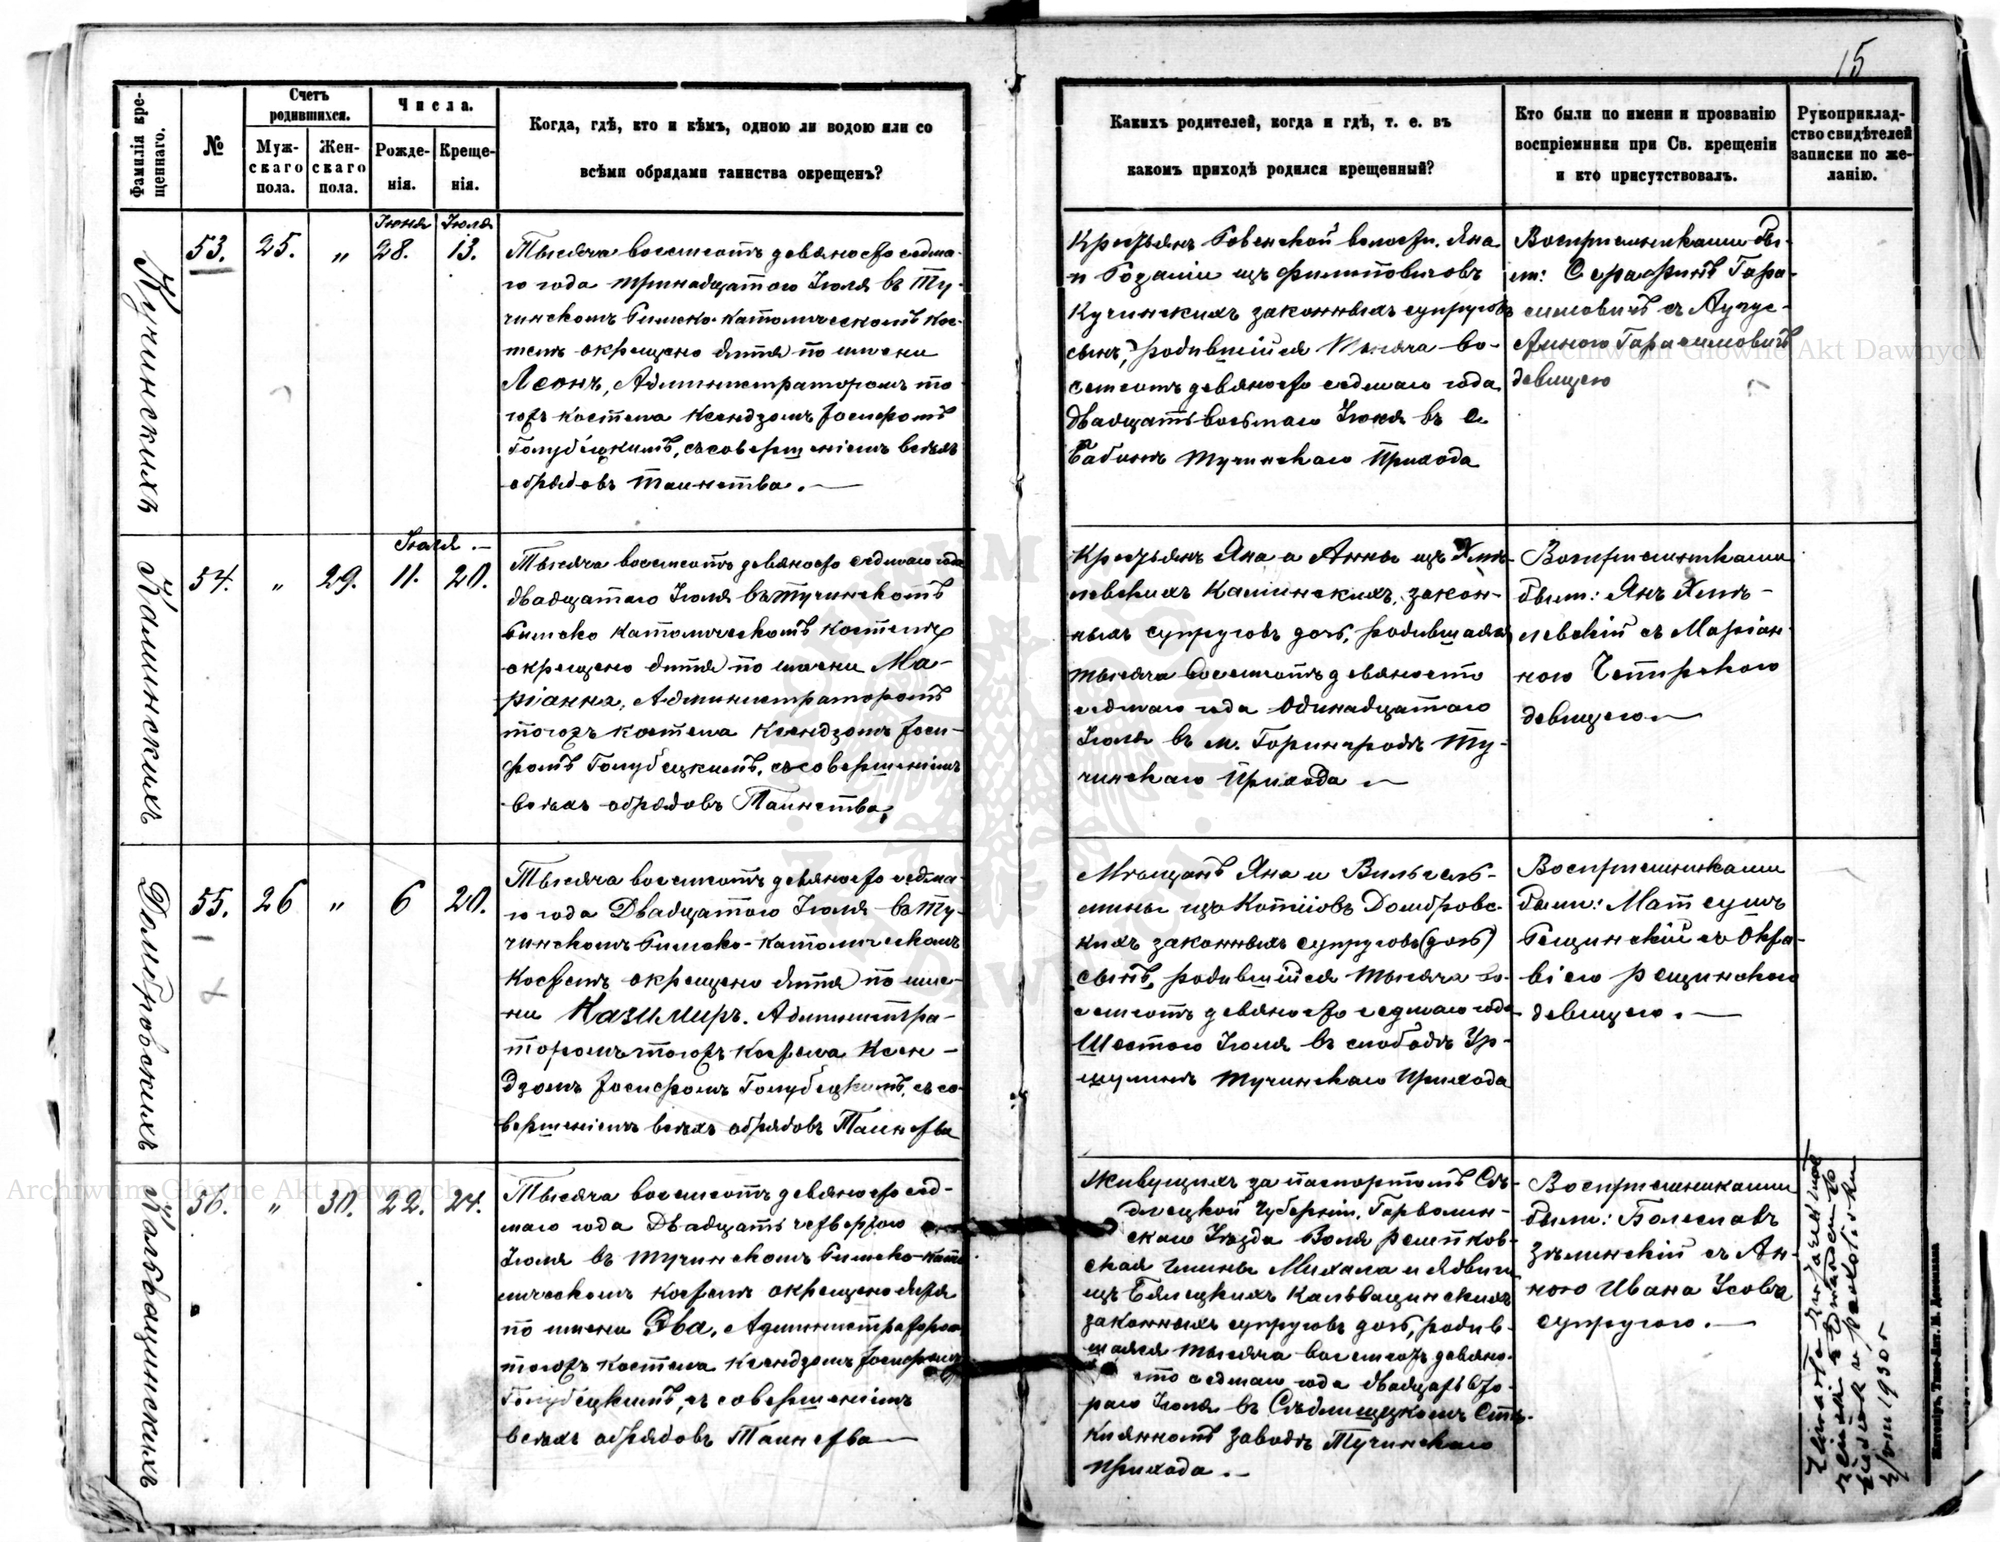 15
Фамилія кре-
щеннаго.
№
Счетъ
родившихся.
Муж-
скаго
пола.
Жен-
скаго
пола.
Числа.
Рожде-
нія.
Креще-
нія.
Когда, гдѣ, кто и кѣмъ, одною ли водою или со
всѣми обрядами таинства окрещенъ?
Какихъ родителей, когда и гдѣ, т. е. въ
какомъ приходѣ родился крещенный?
Кто были по имени и прозванію
воспріемники при Св. крещеніи
и кто присутствовалъ.
Рукоприклад-
ство свидѣтелей
записки по же-
ланію.
Кучинскихъ
53.
25.
"
Іюня
28.
Іюля
13.
Тысяча восемсотъ девяносто седма-
го года тринадцатого Іюля въ Ту-
чинскомъ Римско-католическомъ кос-
телѣ окрещено дитя по имени
Леонъ, Администраторомъ то-
гожъ костела Ксендзомъ Іосифомъ
Голубецкимъ, съ совершеніемъ всѣхъ
обрядовъ таинства.
Крестьянъ Ровенской волости. Яна
и Розаліи изъ Филиповичовъ
Кучинскихъ законныхъ супруговъ
сынъ, родившійся тысяча во-
семсотъ девяносто седмаго года
двадцать восьмаго Іюня въ с.
Бабинѣ Тучинскаго Прихода
Воспріемниками бы-
ли: Серафинъ Гара-
симовичъ съ Аугус-
тиною Гарасимовичъ
девицею
Калинскихъ
54.
"
29.
Іюля
11.
20.
Тысяча восемсотъ девяносто седмаго года
двадцатаго Іюля въ Тучинскомъ
Римско католическомъ костелѣ
окрещено дитя по имени Ма-
ріанна, Администраторомъ
тогожъ костела Ксендзомъ Іоси-
фомъ Голубецкимъ, съ совершеніемъ
всѣхъ обрядовъ Таинства,
Крестьянъ Яна и Анны изъ Хмѣ-
левскихъ Калинскихъ, закон-
ныхъ супруговъ дочь, родившаяся
тысяча восемсотъ девяносто
седмаго года одинадцатаго
Іюля въ м. Горинградѣ Ту-
чинскаго Прихода
Воспріемниками
были: Янъ Хмѣ-
левскій съ Маріан-
ною
девицею
Домбровскихъ
55.
26
"
6
20.
Тысяча восемсотъ девяносто седма-
го года Двадцатаго Іюля въ Ту-
чинскомъ Римско-католическомъ
Костелѣ окрещено дитя по име-
ни Казимиръ. Администра-
торомъ тогожъ костела Ксен-
дзомъ Іосифомъ Голубецкимъ, съ со-
вершеніемъ всѣхъ обрядовъ Таинства
Мѣщанъ Яна и Вильгель-
мины изъ Домбровс-
кихъ законныхъ супруговъ (дочь)
сынъ, родившійся тысяча во-
семсотъ девяносто седмаго года
Шестого Іюля въ слободѣ Ур-
шулинѣ Тучинскаго Прихода
Воспріемниками
были: Матеушъ
Рещинскій съ Окта-
віею Рещинскою
девицею.
Кальващинскихъ
56.
"
30.
22.
24.
Тысяча восемсотъ девяносто сед-
маго года Двадцать четвертого
Іюля въ Тучинскомъ Римско-като-
лическомъ костелѣ окрещено дитя
по имени Эва, Администраторомъ
тогожъ костела Ксендзомъ Іосифомъ
Голубецкимъ, съ совершеніемъ
всѣхъ обрядовъ Таинства
Живущихъ за паспортомъ Сѣ-
длецкой губерніи, Гарволин-
скаго Уѣзда Воля Решков-
ская гмины Михала и Ядвиги
изъ Бялецкихъ Кальващинскихъ
законныхъ супруговъ дочь, родив-
шаяся тысяча восемсотъ девяно-
сто седмаго года двадцать вто-
раго Іюля въ Сѣдлищецкомъ Сте-
клянномъ заводѣ Тучинскаго
Прихода.
Воспріемниками
были: Болеслав
Зѣлинскій съ Ан-
ною Ивана Усова
супругою.
1905
Archiwum Główne Akt Dawnych
Archiwum Główne Akt Dawnych